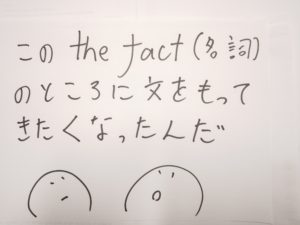 この the fact (名詞)
のところに文をもって
きたくなったんだ